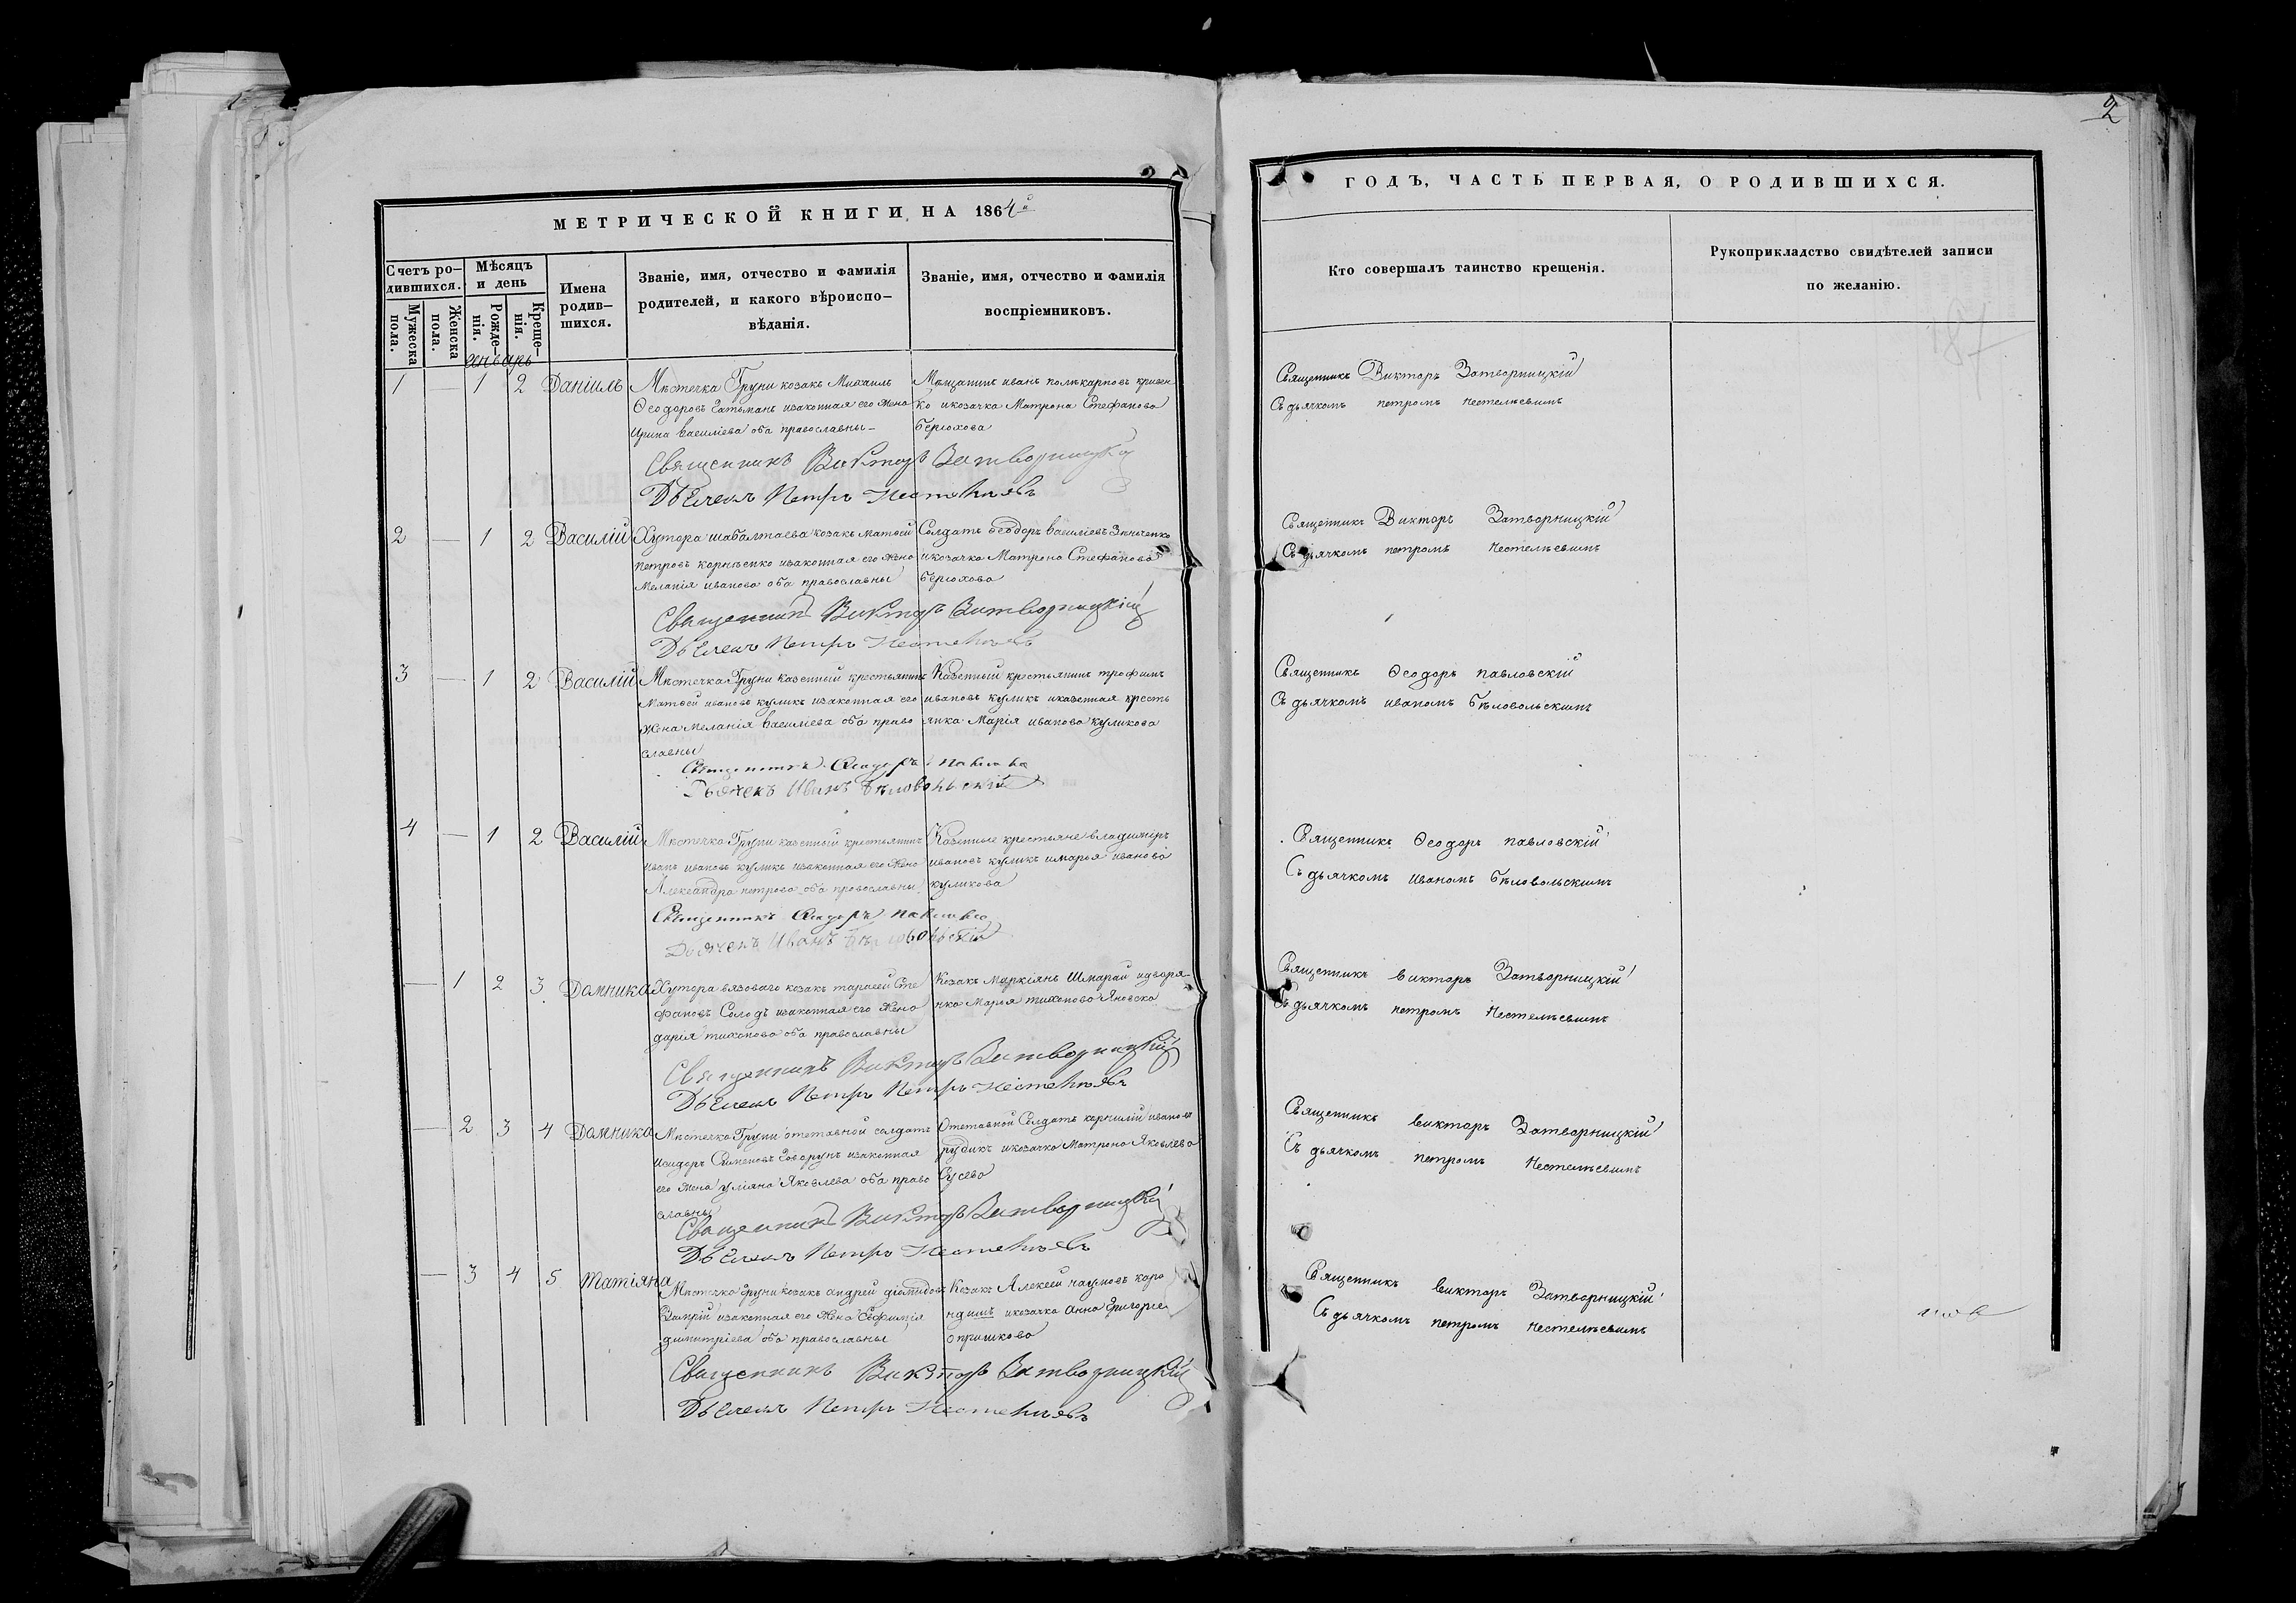 2
МЕТРИЧЕСКОЙ КНИГИ НА 1864й
ГОДЪ, ЧАСТЬ ПЕРВАЯ, О РОДИВШИХСЯ.
Счетъ ро-
дившихся.
Мужеска
пола.
Женска
пола.
Мѣсяцъ
и день
Рожде-
нія.
Креще-
нія.
Имена
родив-
шихся.
Званіе, имя, отчество и фамилія
родителей, и какого вѣроиспо-
вѣданія.
Званіе, имя, отчество и фамилія
воспріемниковъ.
Кто совершалъ таинство крещенія.
Рукоприкладство свидѣтелей записи
по желанію.
Генварь
1 — 1 2 Даніилъ
Мѣстечка Груни козакъ Михаилъ
Ѳеодоровъ Гатьманъ изаконная его жена
Ирина василіева оба православны –
Мѣщанинъ иванъ поликарповъ кривен
ко икозачка Матрона Стефанова
Бѣрюхова
Священникъ Викторъ Затворницкій
Дьячекъ Петръ
Священникъ Викторъ Затворницкій
Съ дьячкомъ петромъ
2 — 1 2 Василій
Хутора шабалтаева козакъ матѳей
петровъ корніенко изаконная его жена
Меланія иванова оба православны
Солдатъ Ѳеодоръ василіевъ Зинченко
икозачка Матрона Стефанова
Бѣрюхова
Священникъ Викторъ Затворницкій
Дьячекъ Петръ
Священникъ Викторъ Затворницкій
Съ дьячкомъ петромъ
3 — 1 2 Василій
Мѣстечка Груни казенный крестьянинъ
Матѳей ивановъ куликъ изаконная его
жена Меланія василіева оба право
славны
Казенный крестьянинъ трофимъ
ивановъ куликъ иказенная кресть
янка Марія иванова куликова
Священникъ Ѳеодоръ
Дьячекъ Иванъ Бѣловольскій
Священникъ Ѳеодоръ павловскій
Съ дьячкомъ иваномъ Бѣловольскимъ
4 — 1 2 Василій
Мѣстечка Груни казенный крестьянинъ
иванъ ивановъ куликъ изаконная его жена
Александра петрова оба православны
Казенные крестьяне владимиръ
ивановъ куликъ имарья иванова
куликова
Священникъ Ѳеодоръ
Дьячекъ Иванъ Бѣловольскій
Священникъ Ѳеодоръ павловскій
Съ дьячкомъ Иваномъ Бѣловольскимъ
— 1 2 3 Домника
Хутора вязоваго козакъ тарасей Сте
фановъ Солодъ изаконная его жена
дарія тихонова оба православны
Козакъ Маркіянъ Шмарай идворя
нка Марья тихонова Яновска
Священникъ Викторъ Затворницкій
Дьячекъ Петръ Петръ
Священникъ викторъ Затворницкій
Съ дьячкомъ петромъ
— 2 3 4 Домника
Мѣстечка Груни отставной солдатъ
Исидоръ Симеоновъ Говорунъ изаконная
его жена уліяна Яковлева оба право
славны
Отставной Солдатъ корнилій ивановъ
рудикъ икозачка Матрона Яковлева
Гусева
Священникъ Викторъ Затворницкій
Дьячекъ Петръ
Священникъ викторъ Затворницкій
Съ дьячкомъ петромъ
— 3 4 5 Татіяна
Мѣстечка груни козакъ андрей діомидовъ
изаконная его жена Евфимія
димитріева оба православны
Козакъ Алексей наумовъ каро
ндишъ икозачка анна Григорье
опришкова
Священникъ Викторъ Затворницкій
Дьячекъ Петръ
Священникъ викторъ Затворницкій
Съ дьячкомъ петромъ